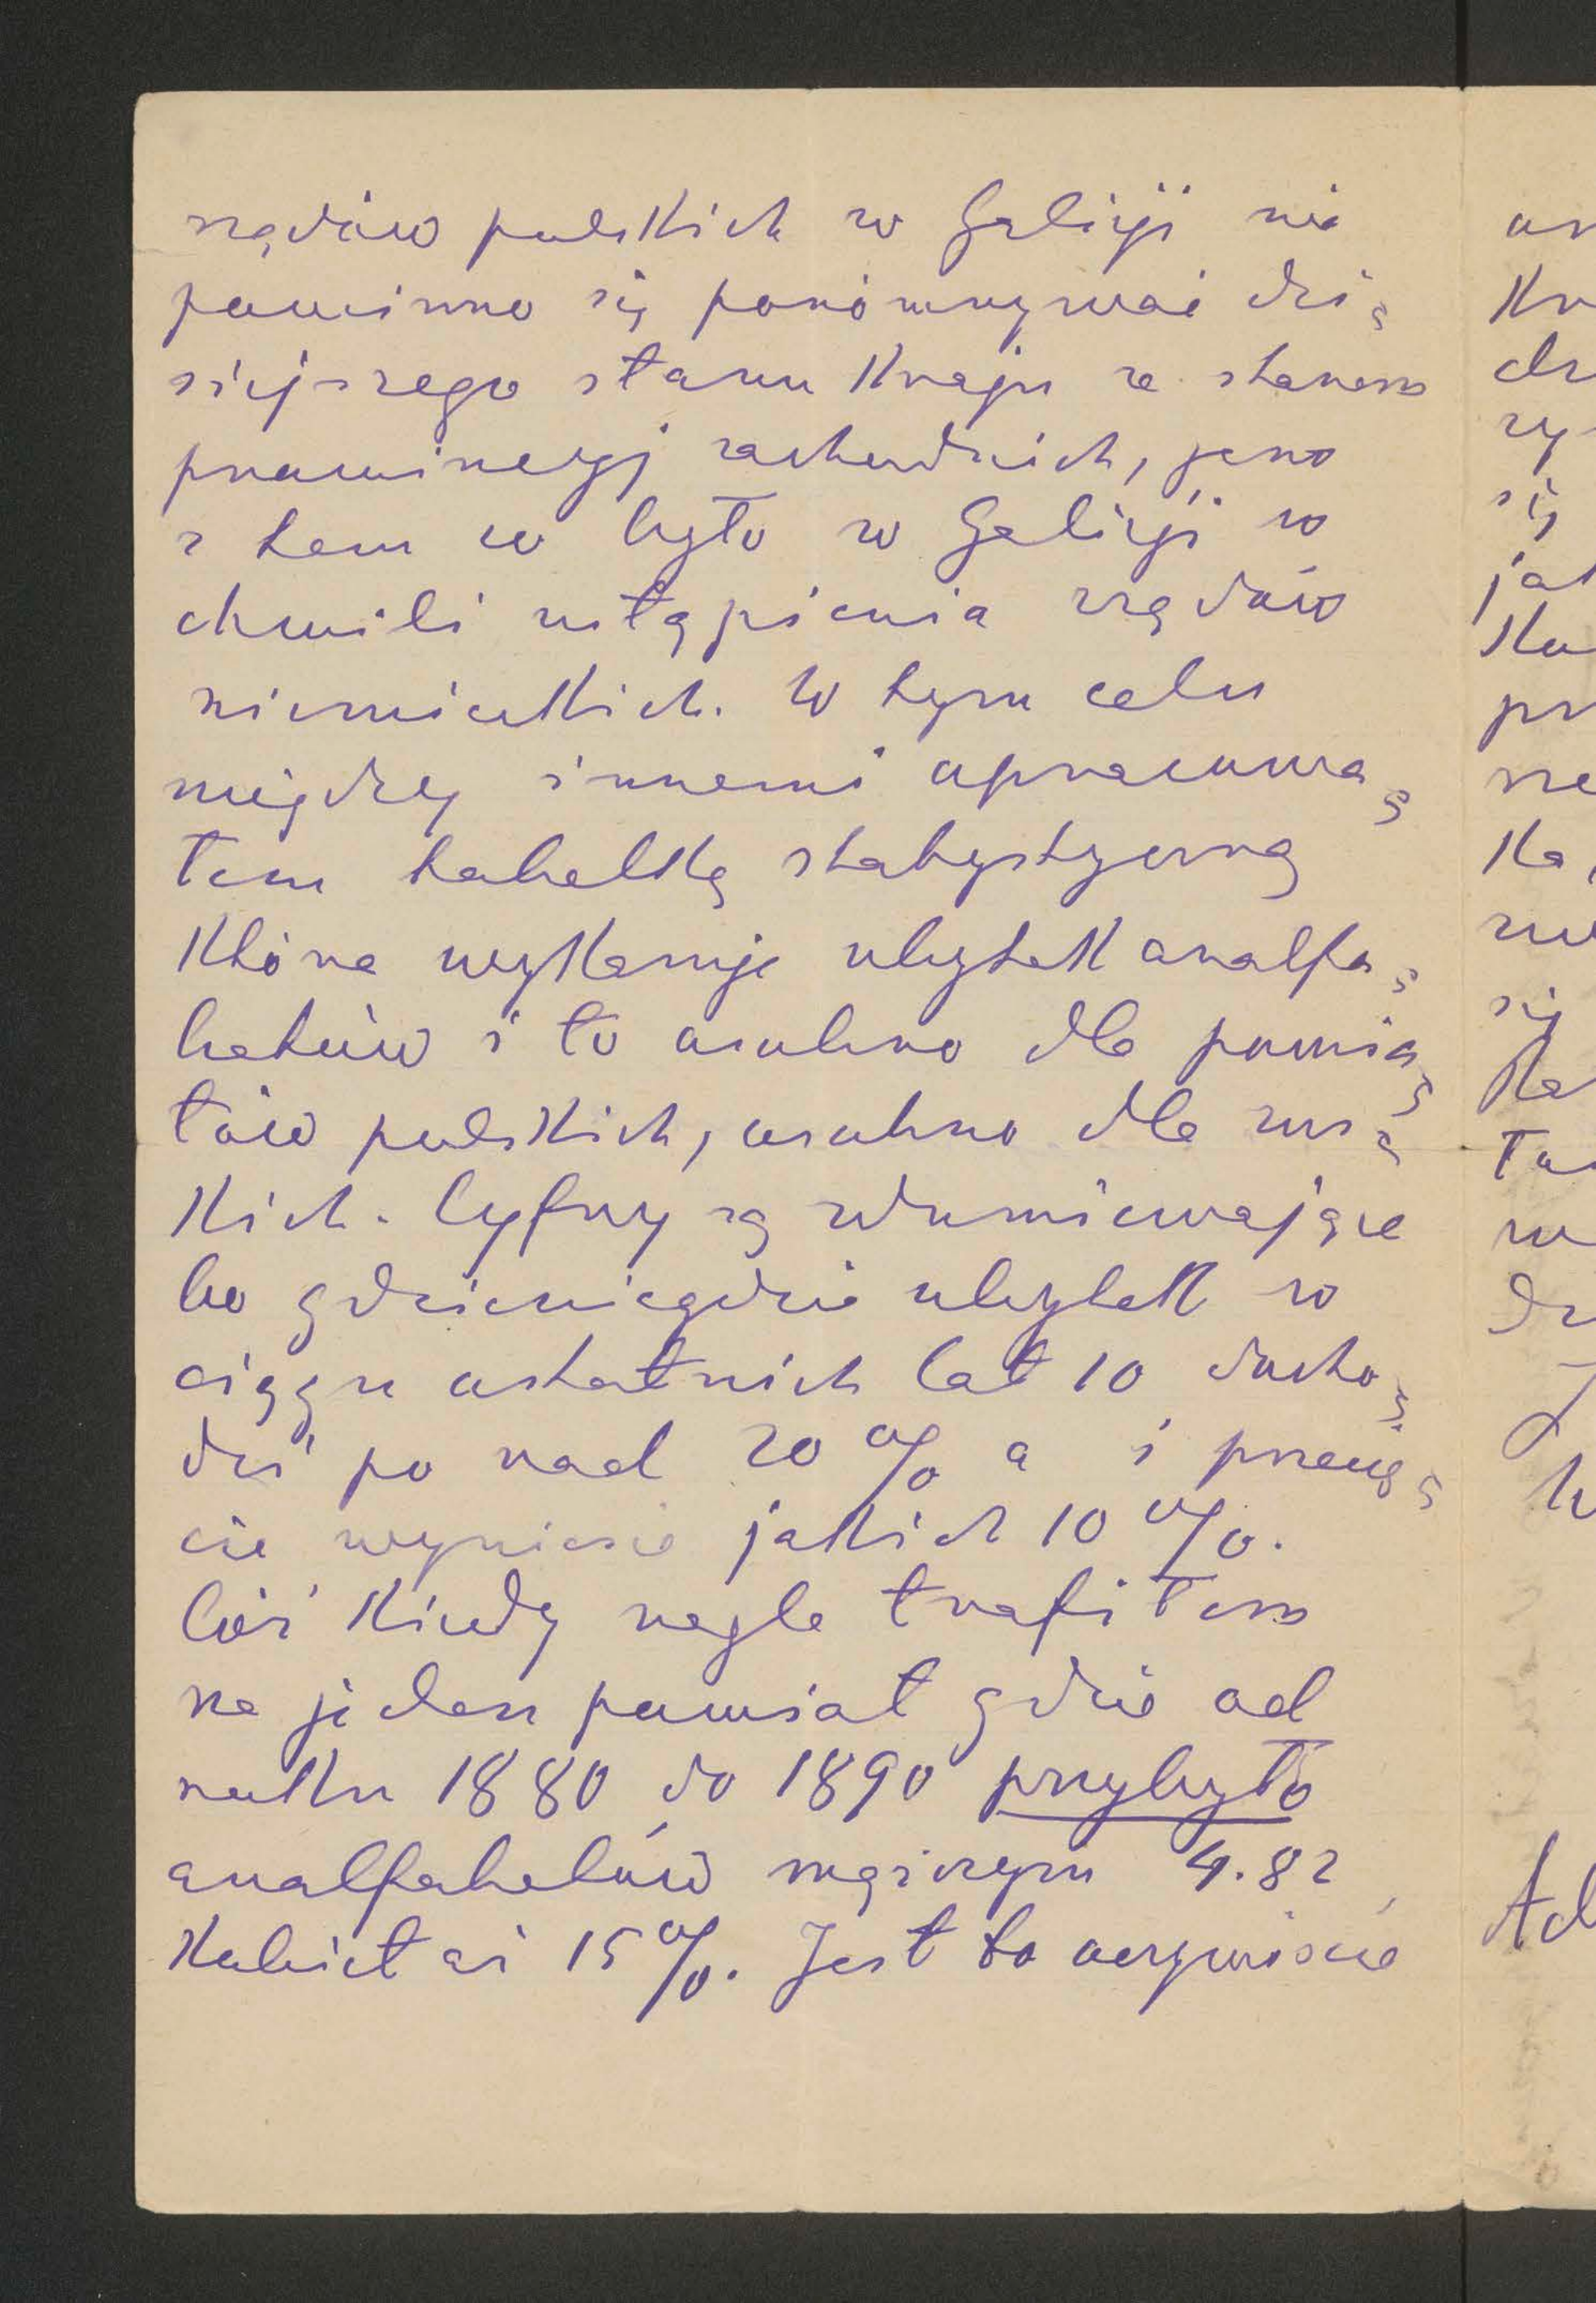 rządów polskich w Galicji nie
powinno się porównywać dzi„
siejszego stanu Kraju ze stanem
prowincyj zachodnich, jeno
z tem co było w Galicji w
chwili ustąpienia rządów
niemieckich. W tym celu
między innemi opracowa„
łem tabelkę statystyczną
która wykazuje ubytek analfa„
betów i to osobno dla powia„
tów polskich, osobno dla rus„
kich. Cyfry są zdumiewające
bo gdzieniegdzie ubytek w
ciągu ostatnich lat 10 docho„
dzi po nad 20 % a i przecię„
cie wyniesie jakich 10 %.
Cóż kiedy nagle trafiłem
na jeden powiat gdzie od
roku 1880 do 1890 przybyło
analfabetów mężczyzn 4.82
Kobiet aż 15 %. Jest to oczywiście
an
Kr
dz
zy
się
jak
Ko
pr
ne
Ka
się
Ka
Ta
w
dz
Ad